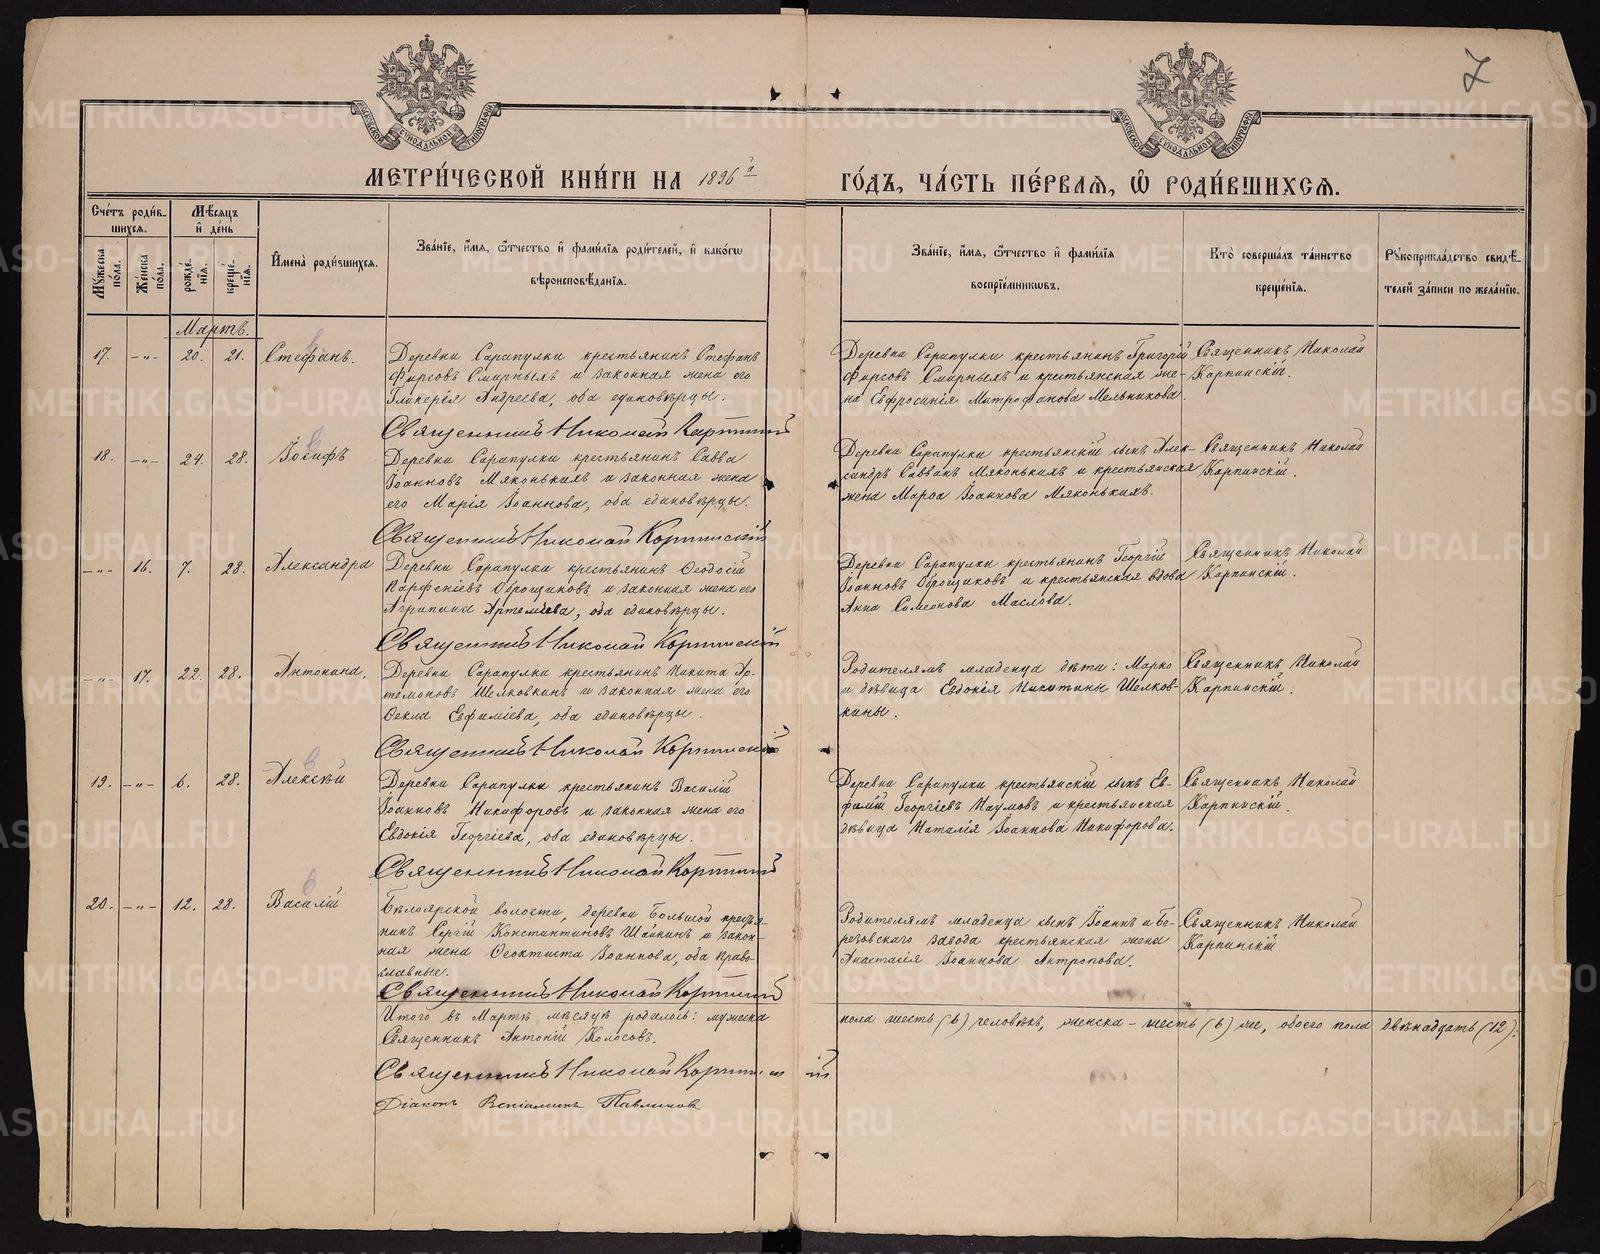 7
МОСКОВСКОЙ СѴНОДАЛЬНОЙ ТИПОГРАФІИ
МОСКОВСКОЙ СѴНОДАЛЬНОЙ ТИПОГРАФІИ
МЕТРИ́ЧЕСКОЙ КНИ́ГИ НА 1896й
ГО́ДЪ, ЧА́СТЬ ПЕ́РВАЯ, Ѡ РОДИ́ВШИХСЯ.
Сче́тъ роди́в-
шихся.
Мѣ́сяцъ
и҆ де́нь
Мꙋ́жеска
по́ла.
Же́нска
по́ла.
рожде́-
нїя.
креще́-
нїя.
И҆мена̀ роди́вшихся.
Зва́нїе, и҆́мя, ѻ҆́тчество и҆ фами́лїя роди́телей, и҆ како́гѡ
вѣроисповѣ́данїя.
Зва́нїе, и҆́мя, ѻ҆́тчество и҆ фами́лїя
воспрїе́мникѡвъ.
Кто̀ соверша́лъ та́инство
креще́нїя.
Рꙋкоприкла́дство свидѣ́-
телей за́писи по жела́нїю.
Мартъ.
17. -„- 20. 21. Стефанъ.
Деревни Сарапулки крестьянинъ Стефанъ
Фирсовъ Смирныхъ и законная жена его
Гликерія Андреева, оба единовѣрцы.
Священникъ Николай Карпинскій
Деревни Сарапулки крестьянинъ Григорій
Фирсовъ Смирныхъ и крестьянская же-
на Евфросинія Митрофанова Мельникова.
Священникъ Николай
Карпинскій.
18. -„- 24. 28. Іосифъ
Деревни Сарапулки крестьянинъ Савва
Іоанновъ Мяконькихъ и законная жена
его Марія Іоаннова, оба единовѣрцы.
Священникъ Николай Карпинскій
Деревни Сарапулки крестьянскій сынъ Алек-
сандръ Саввинъ Мяконькихъ и крестьянская
жена Марѳа Іоаннова Мяконькихъ.
Священникъ Николай
Карпинскій.
-„- 16. 7. 28. Александра
Деревни Сарапулки крестьянинъ Ѳеодосій
Парфеніевъ Оброщиковъ и законная жена его
Агрипина Артемиева, оба единовѣрцы.
Священникъ Николай Карпинскій
Деревни Сарапулки крестьянинъ Георгій
Іоанновъ Оброщиковъ и крестьянская вдова
Анна Симеонова Маслова.
Священникъ Николай
Карпинскій.
-„- 17. 22. 28. Антонина.
Деревни Сарапулки крестьянинъ Никита Ар-
темоновъ Шелковкинъ и законная жена его
Ѳекла Евфиміева, оба единовѣрцы.
Священникъ Николай Карпинскій
Родителямъ младенца дѣти: Марко
и дѣвица Евдокія Никитины Шелков-
кины.
Священникъ Николай
Карпинскій.
19. -„- 6. 28. Алексѣй
Деревни Сарапулки крестьянинъ Василій
Іоанновъ Никифоровъ и законная жена его
Евдокія Георгіева, оба единовѣрцы.
Священникъ Николай Карпинскій
Деревни Сарапулки крестьянскій сынъ Ев-
фимій Георгіевъ Наумовъ и крестьянская
дѣвица Наталія Іоаннова Никифорова.
Священникъ Николай
Карпинскій.
20. -„- 12. 28. Василій
Бѣлоярской волости, деревни Большой крестья-
нинъ Сергій Константиновъ Шайкинъ и закон-
ная жена Ѳеоктиста Іоаннова, оба право-
славные.
Священникъ Николай Карпинскій
Родителямъ младенца сынъ Іоаннъ и Бе-
резовскаго завода крестьянская жена
Анастасія Іоаннова Антропова.
Священникъ Николай
Карпинскій
Итого въ Мартѣ мѣсяцѣ родилось: мужеска
пола шесть (6) человѣкъ, женска - шесть (6) же, обоего пола двѣнадцать (12).
Священникъ Антоній Колосовъ.
Священникъ Николай Карпинскій
Діаконъ Веніаминъ Павлиновъ
METRIKI.GASO-URAL.RU